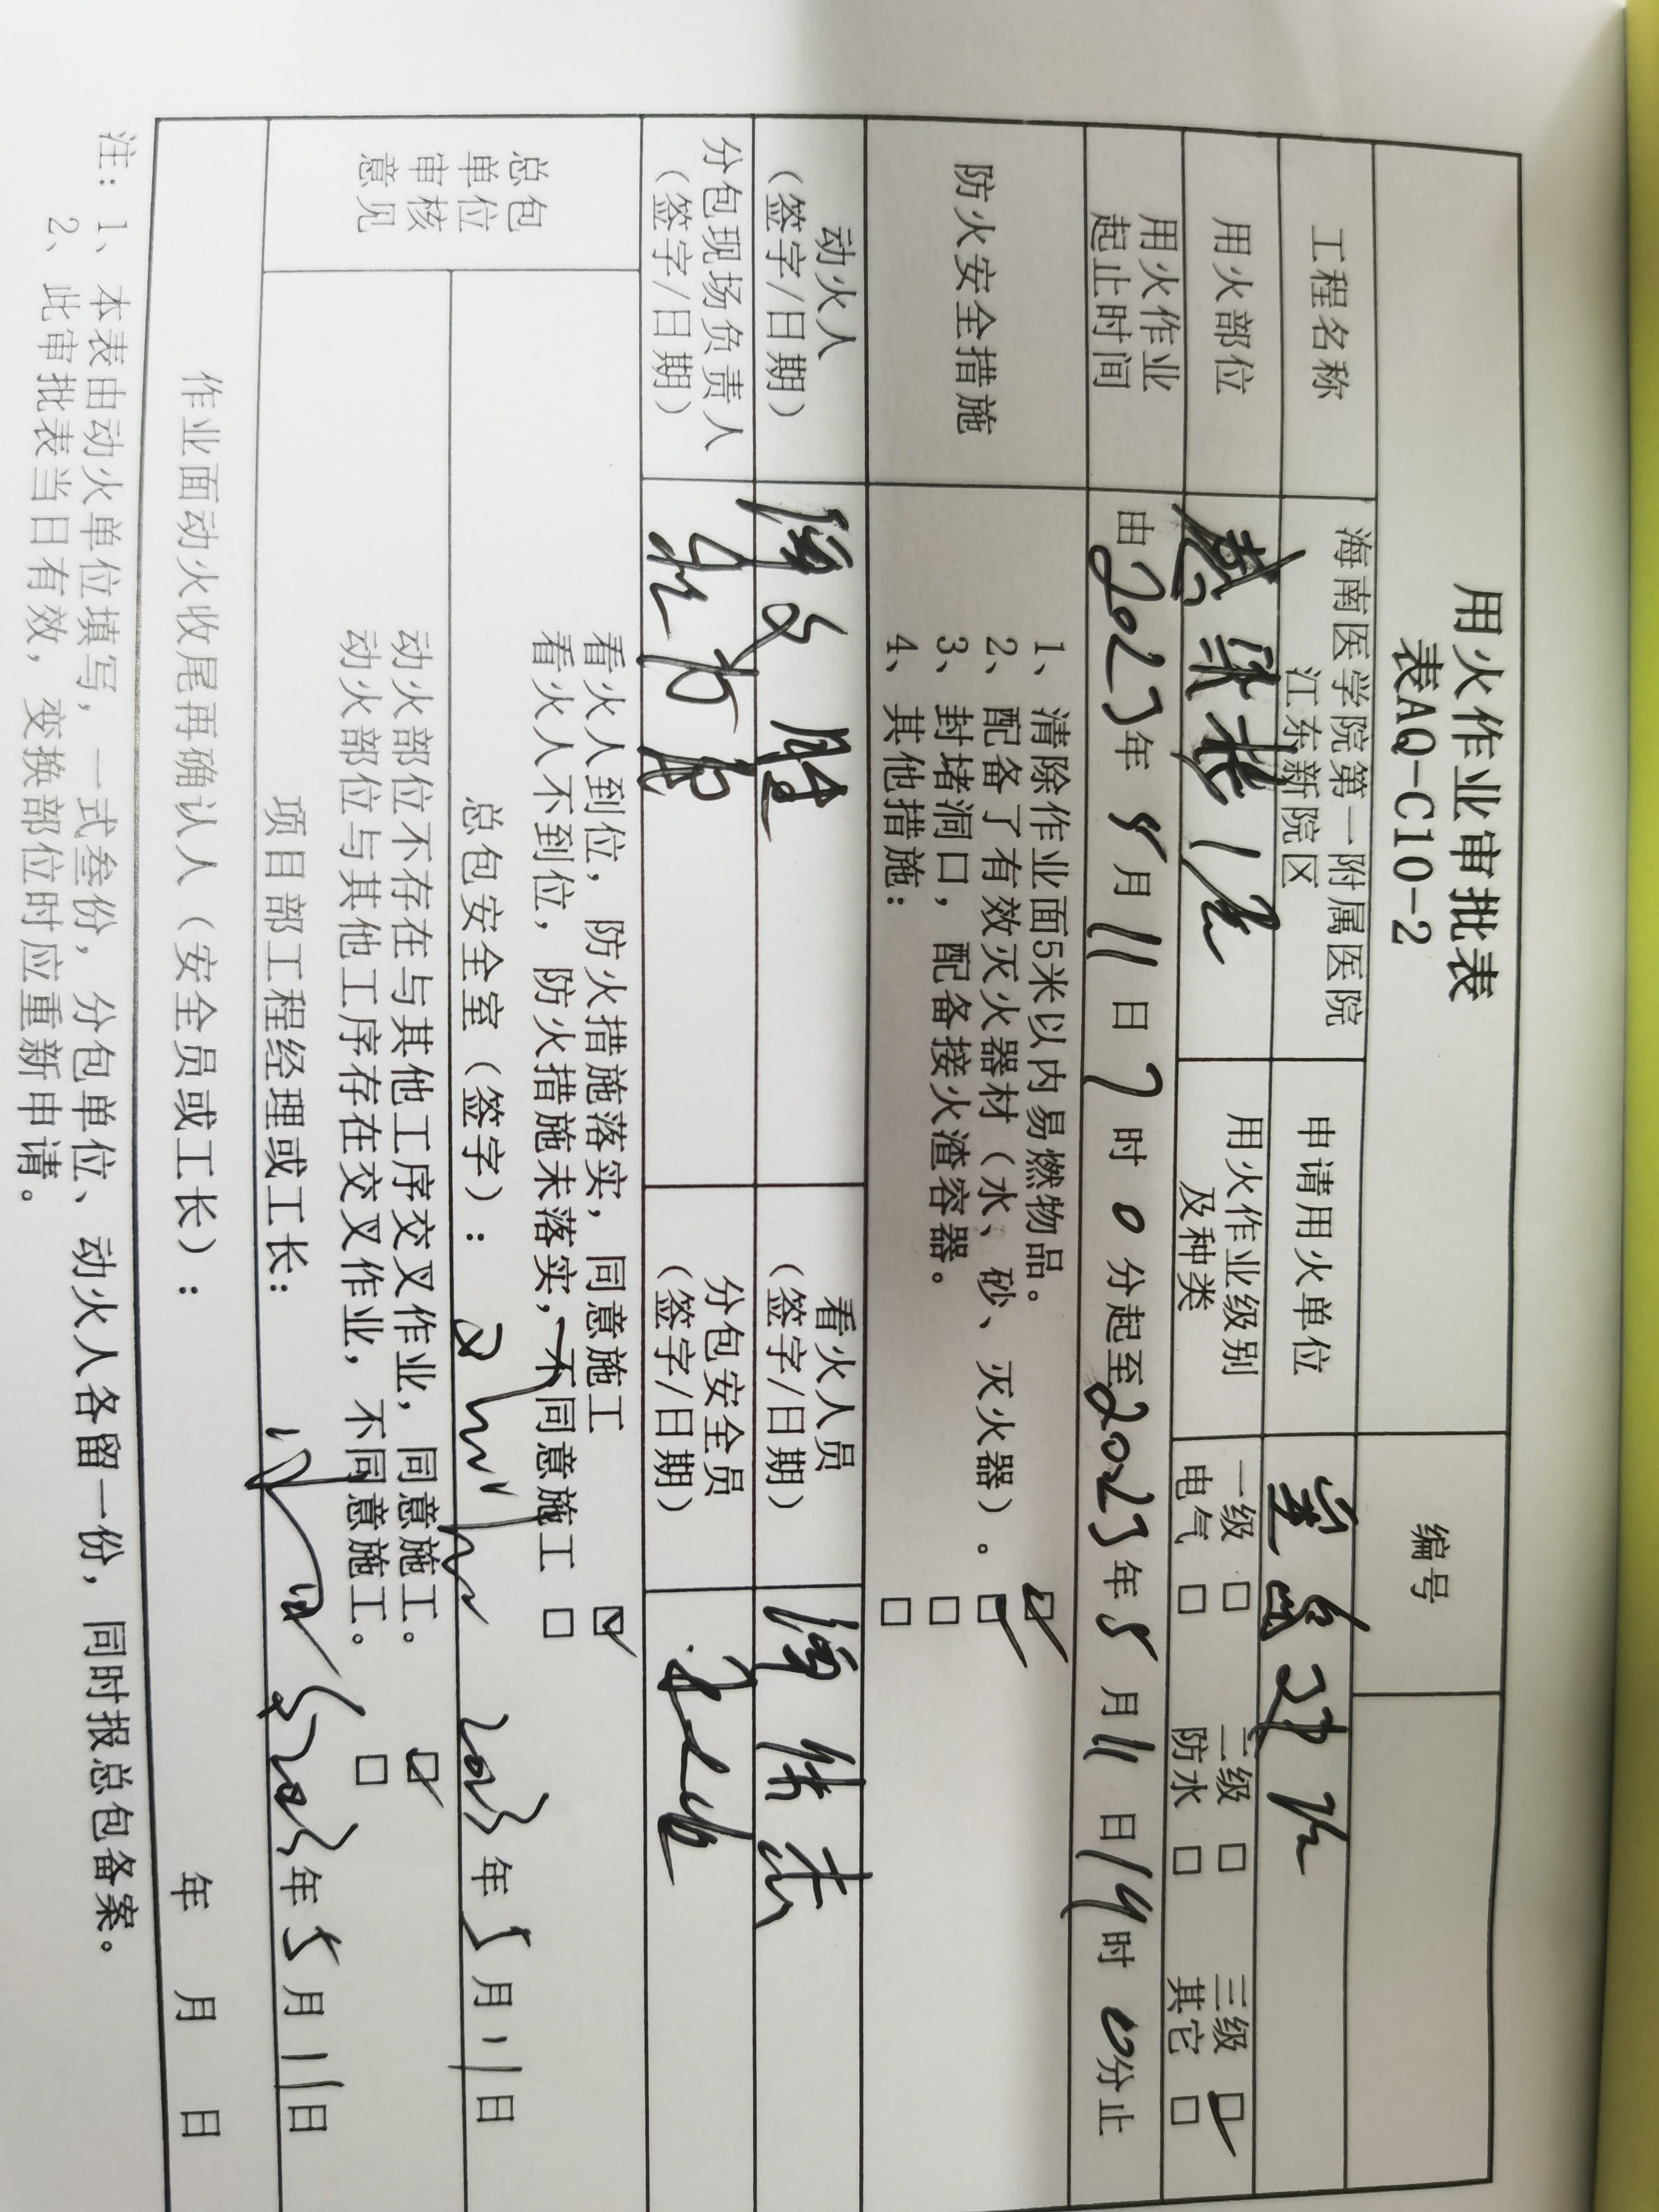 用火作业审批表
表AQ-C10-2
编号
工程名称
海南医学院第一附属医院
江东新院区
申请用火单位
宝岛建设
用火部位
感染楼1层
用火作业级别
及种类
一级 □ 二级 □ 三级 ☑
电气 □ 防水 □ 其它 □
用火作业
起止时间
由2023年5月11日7时0分起至2023年5月11日19时0分止
防火安全措施
1、清除作业面5米以内易燃物品。 ☑
2、配备了有效灭火器材（水、砂、灭火器）。 ☑
3、封堵洞口，配备接火渣容器。 □
4、其他措施： □
动火人
（签字/日期）
谭文胜
看火人员
（签字/日期）
谭 杰
分包现场负责人
（签字/日期）
分包安全员
（签字/日期）
总包
单位
审核
意见
看火人到位，防火措施落实，同意施工 ☑
看火人不到位，防火措施未落实，不同意施工 □
总包安全室（签字）： 2023年5月11日
动火部位不存在与其他工序交叉作业，同意施工。 ☑
动火部位与其他工序存在交叉作业，不同意施工。 □
项目部工程经理或工长： 2023年5月11日
作业面动火收尾再确认人（安全员或工长）： 年 月 日
注：1、本表由动火单位填写，一式叁份，分包单位、动火人各留一份，同时报总包备案。
2、此审批表当日有效，变换部位时应重新申请。